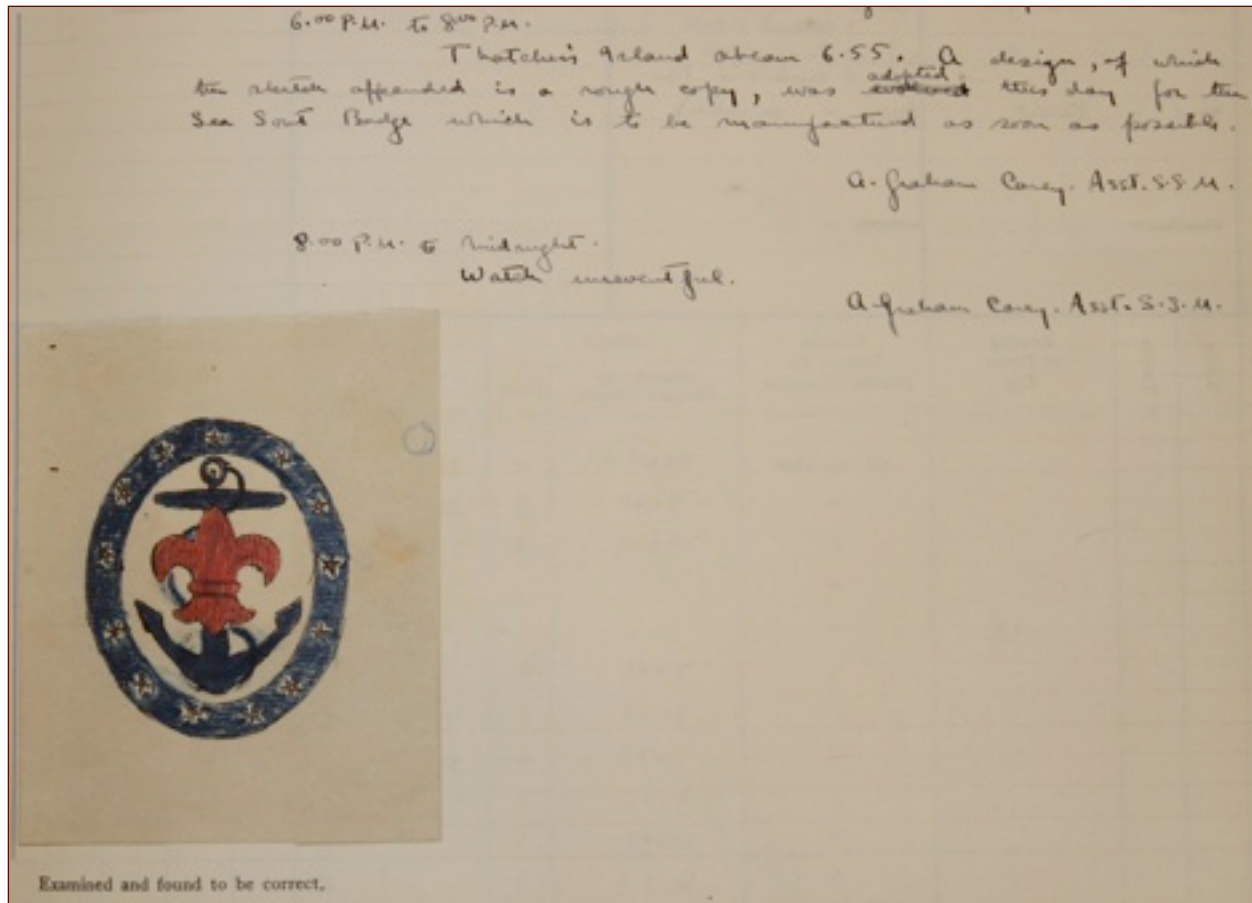 6.00 P.M. to 8.00 P.M.
Thatcher's Island abeam 6.55. A design, of which
the sketch appended is a rough copy, was adopted this day for the
Sea Sout Badge which is to be manufactured as soon as possible.
A. Graham Carey. Asst. S.S.M.
8.00 P.M. to Midnight.
Watch uneventful.
A. Graham Carey. Asst. S.S.M.
Examined and found to be correct,